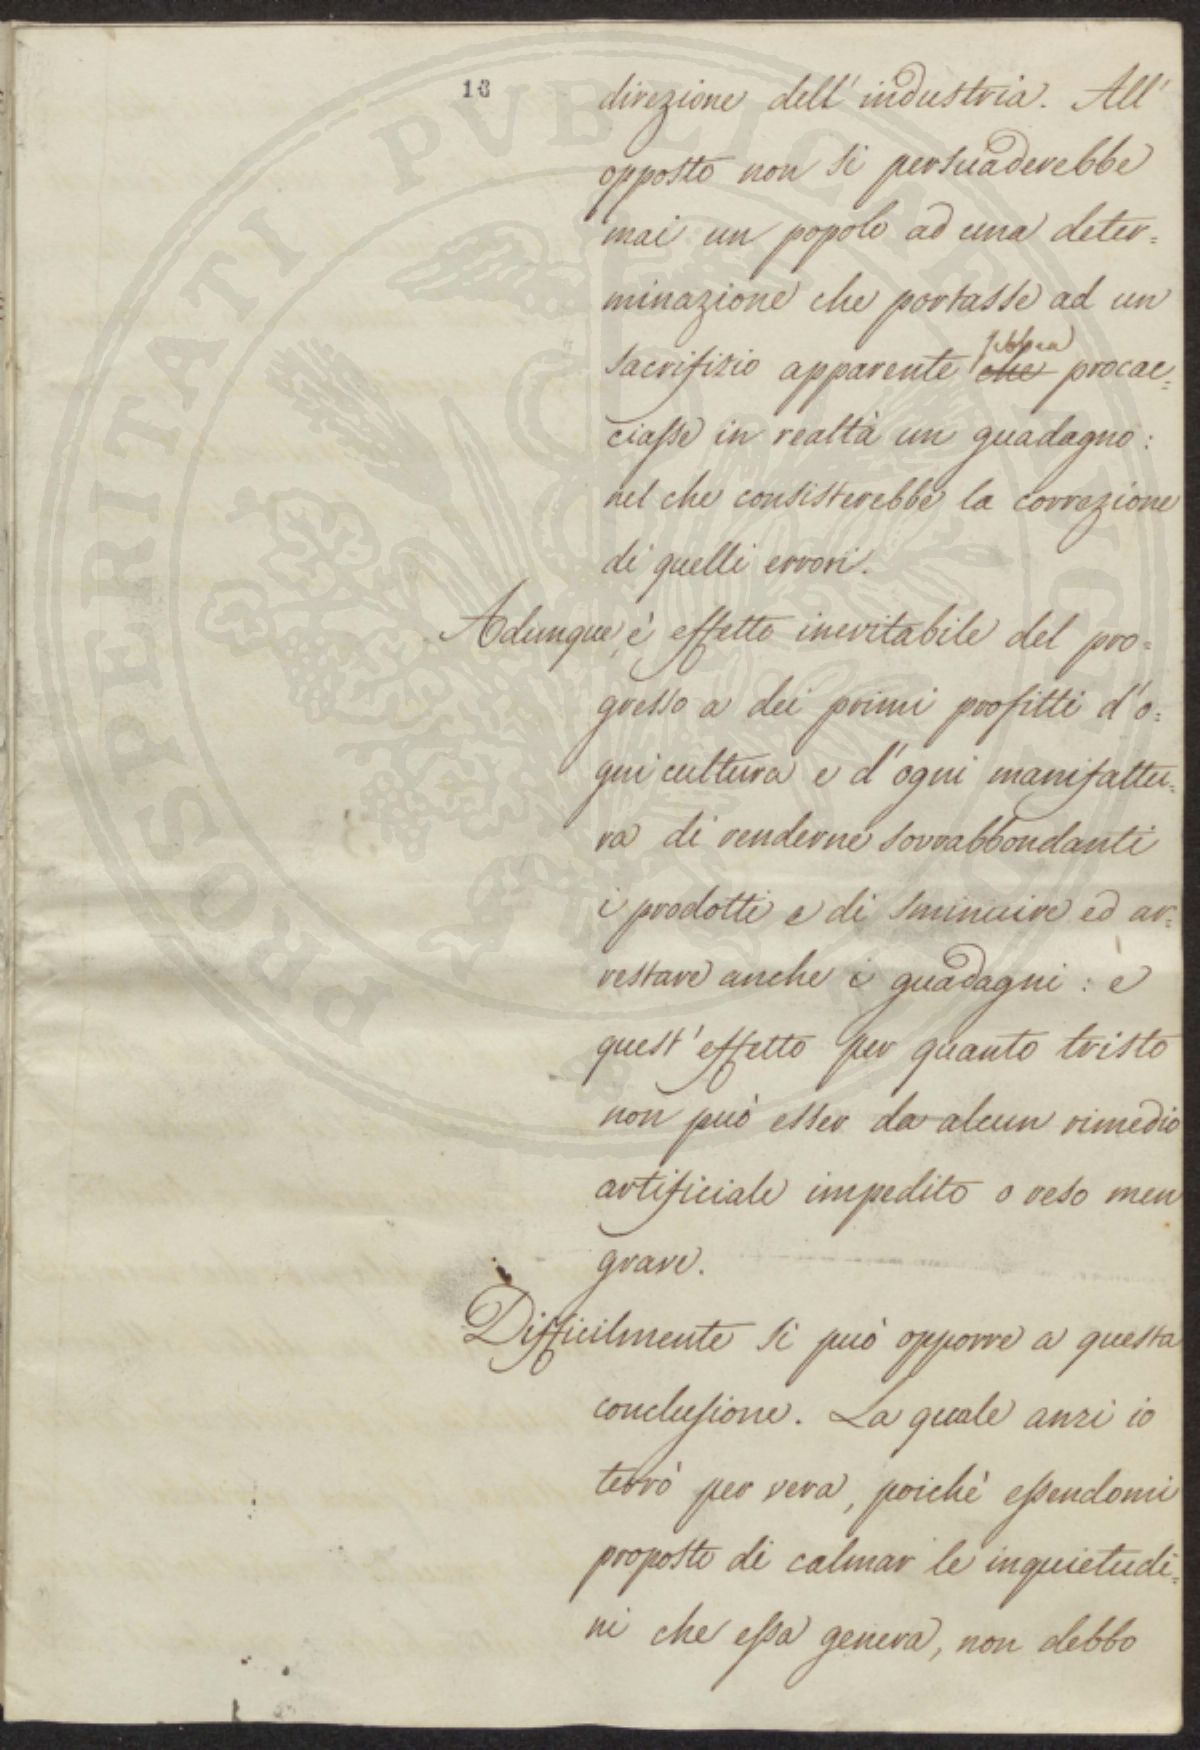 18
direzione dell' industria. All'
opposto non si persuaderebbe
mai un popolo ad una deter=
minazione che portasse ad un
sacrifizio apparente sebbene che procac=
ciasse in realtà un guadagno:
nel che consisterebbe la correzione
di quelli errori.
Adunque è effetto inevitabile del pro=
gresso a dei primi profitti d'o=
gni cultura e d'ogni manifattu=
ra di renderne sovrabbondanti
i prodotti e di sminuire ed ar=
restare anche i guadagni: e
quest' effetto per quanto tristo
non può esser da alcun rimedio
artificiale impedito o reso men
grave.
Difficilmente si può opporre a questa
conclusione. La quale anzi io
terrò per vera, poichè essendomi
proposto di calmar le inquietudi=
ni che essa genera, non debbo
PROSPERITATI PVBLICAE AVGENDAE